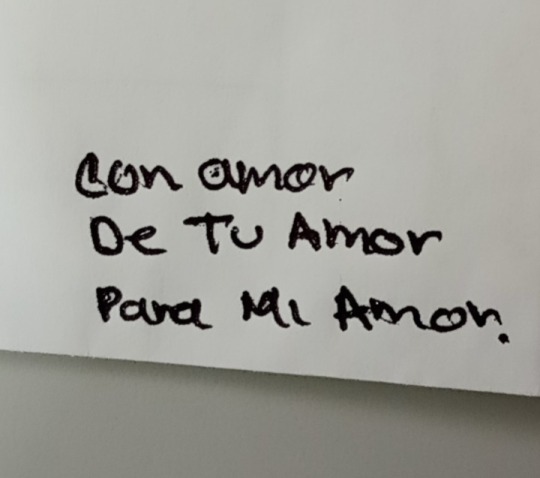 Con amor
De Tu Amor
Para Mi Amor.